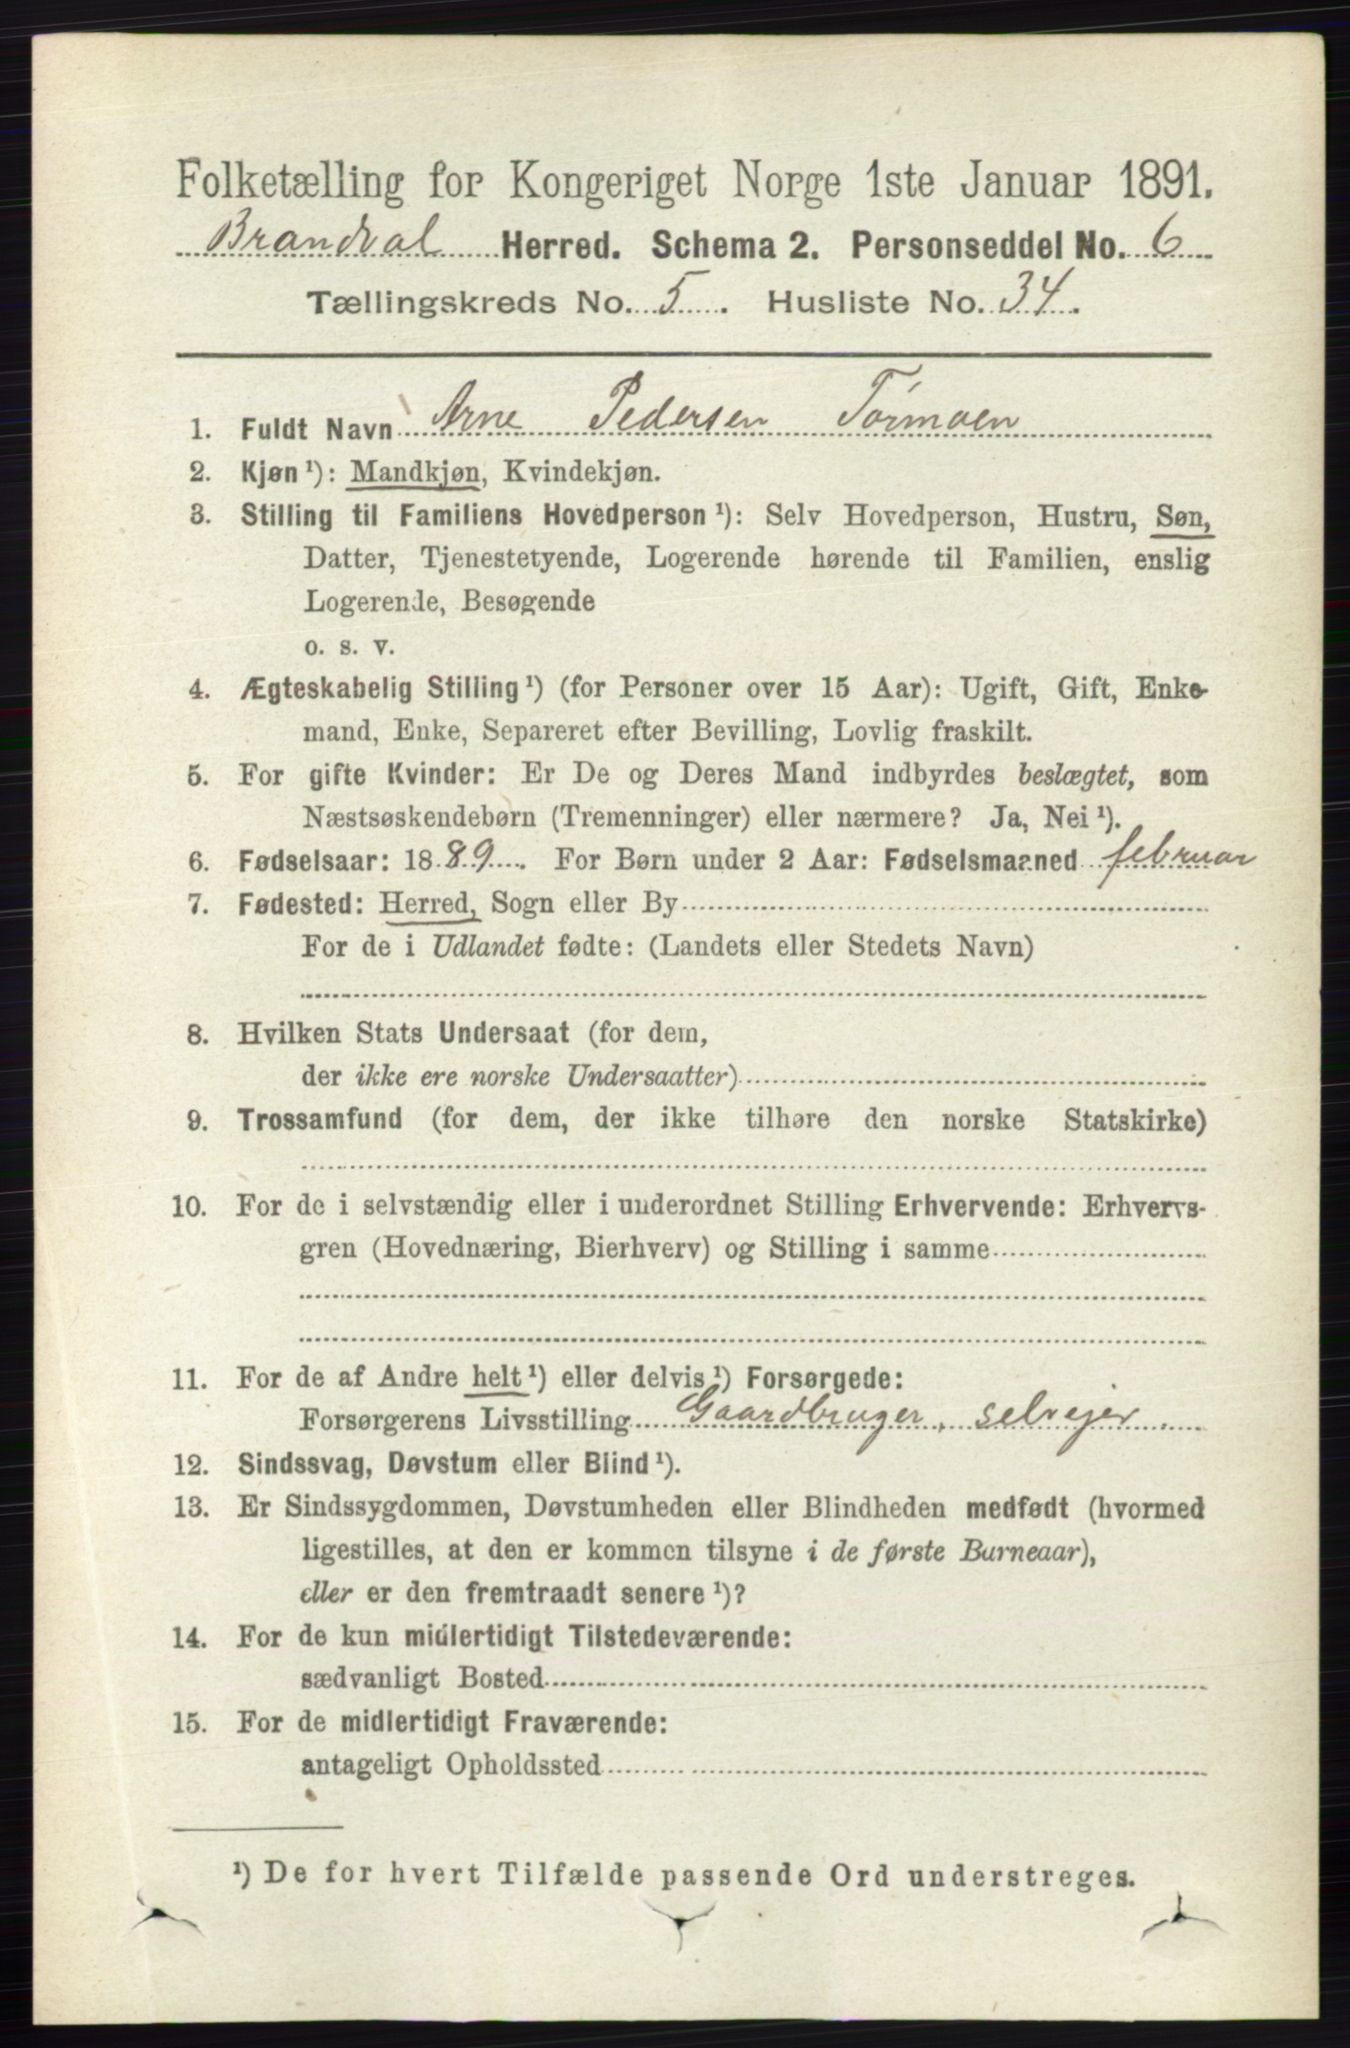 Folketælling for Kongeriget Norge 1ste Januar 1891.
Brandval Herred. Schema 2. Personseddel No. 6
Tællingskreds No. 5. Husliste No. 34.
1. Fuldt Navn Arne Pedersen Tormoen
2. Kjøn ¹): Mandkjøn, Kvindekjøn.
3. Stilling til Familiens Hovedperson ¹): Selv Hovedperson, Hustru, Søn,
Datter, Tjenestetyende, Logerende hørende til Familien, enslig
Logerende, Besøgende
o. s. v.
4. Ægteskabelig Stilling ¹) (for Personer over 15 Aar): Ugift, Gift, Enke-
mand, Enke, Separeret efter Bevilling, Lovlig fraskilt.
5. For gifte Kvinder: Er De og Deres Mand indbyrdes beslægtet, som
Næstsøskendebørn (Tremenninger) eller nærmere? Ja, Nei ¹).
6. Fødselsaar: 1889. For Børn under 2 Aar: Fødselsmaaned februar
7. Fødested: Herred, Sogn eller By
For de i Udlandet fødte: (Landets eller Stedets Navn)
8. Hvilken Stats Undersaat (for dem,
der ikke ere norske Undersaatter)
9. Trossamfund (for dem, der ikke tilhøre den norske Statskirke)
10. For de i selvstændig eller i underordnet Stilling Erhvervende: Erhvervs-
gren (Hovednæring, Bierhverv) og Stilling i samme
11. For de af Andre helt ¹) eller delvis ¹) Forsørgede:
Forsørgerens Livsstilling Gaardbruger, selvejer.
12. Sindssvag, Døvstum eller Blind ¹).
13. Er Sindssygdommen, Døvstumheden eller Blindheden medfødt (hvormed
ligestilles, at den er kommen tilsyne i de første Barneaar),
eller er den fremtraadt senere ¹)?
14. For de kun midlertidigt Tilstedeværende:
sædvanligt Bosted
15. For de midlertidigt Fraværende:
antageligt Opholdssted
¹) De for hvert Tilfælde passende Ord understreges.